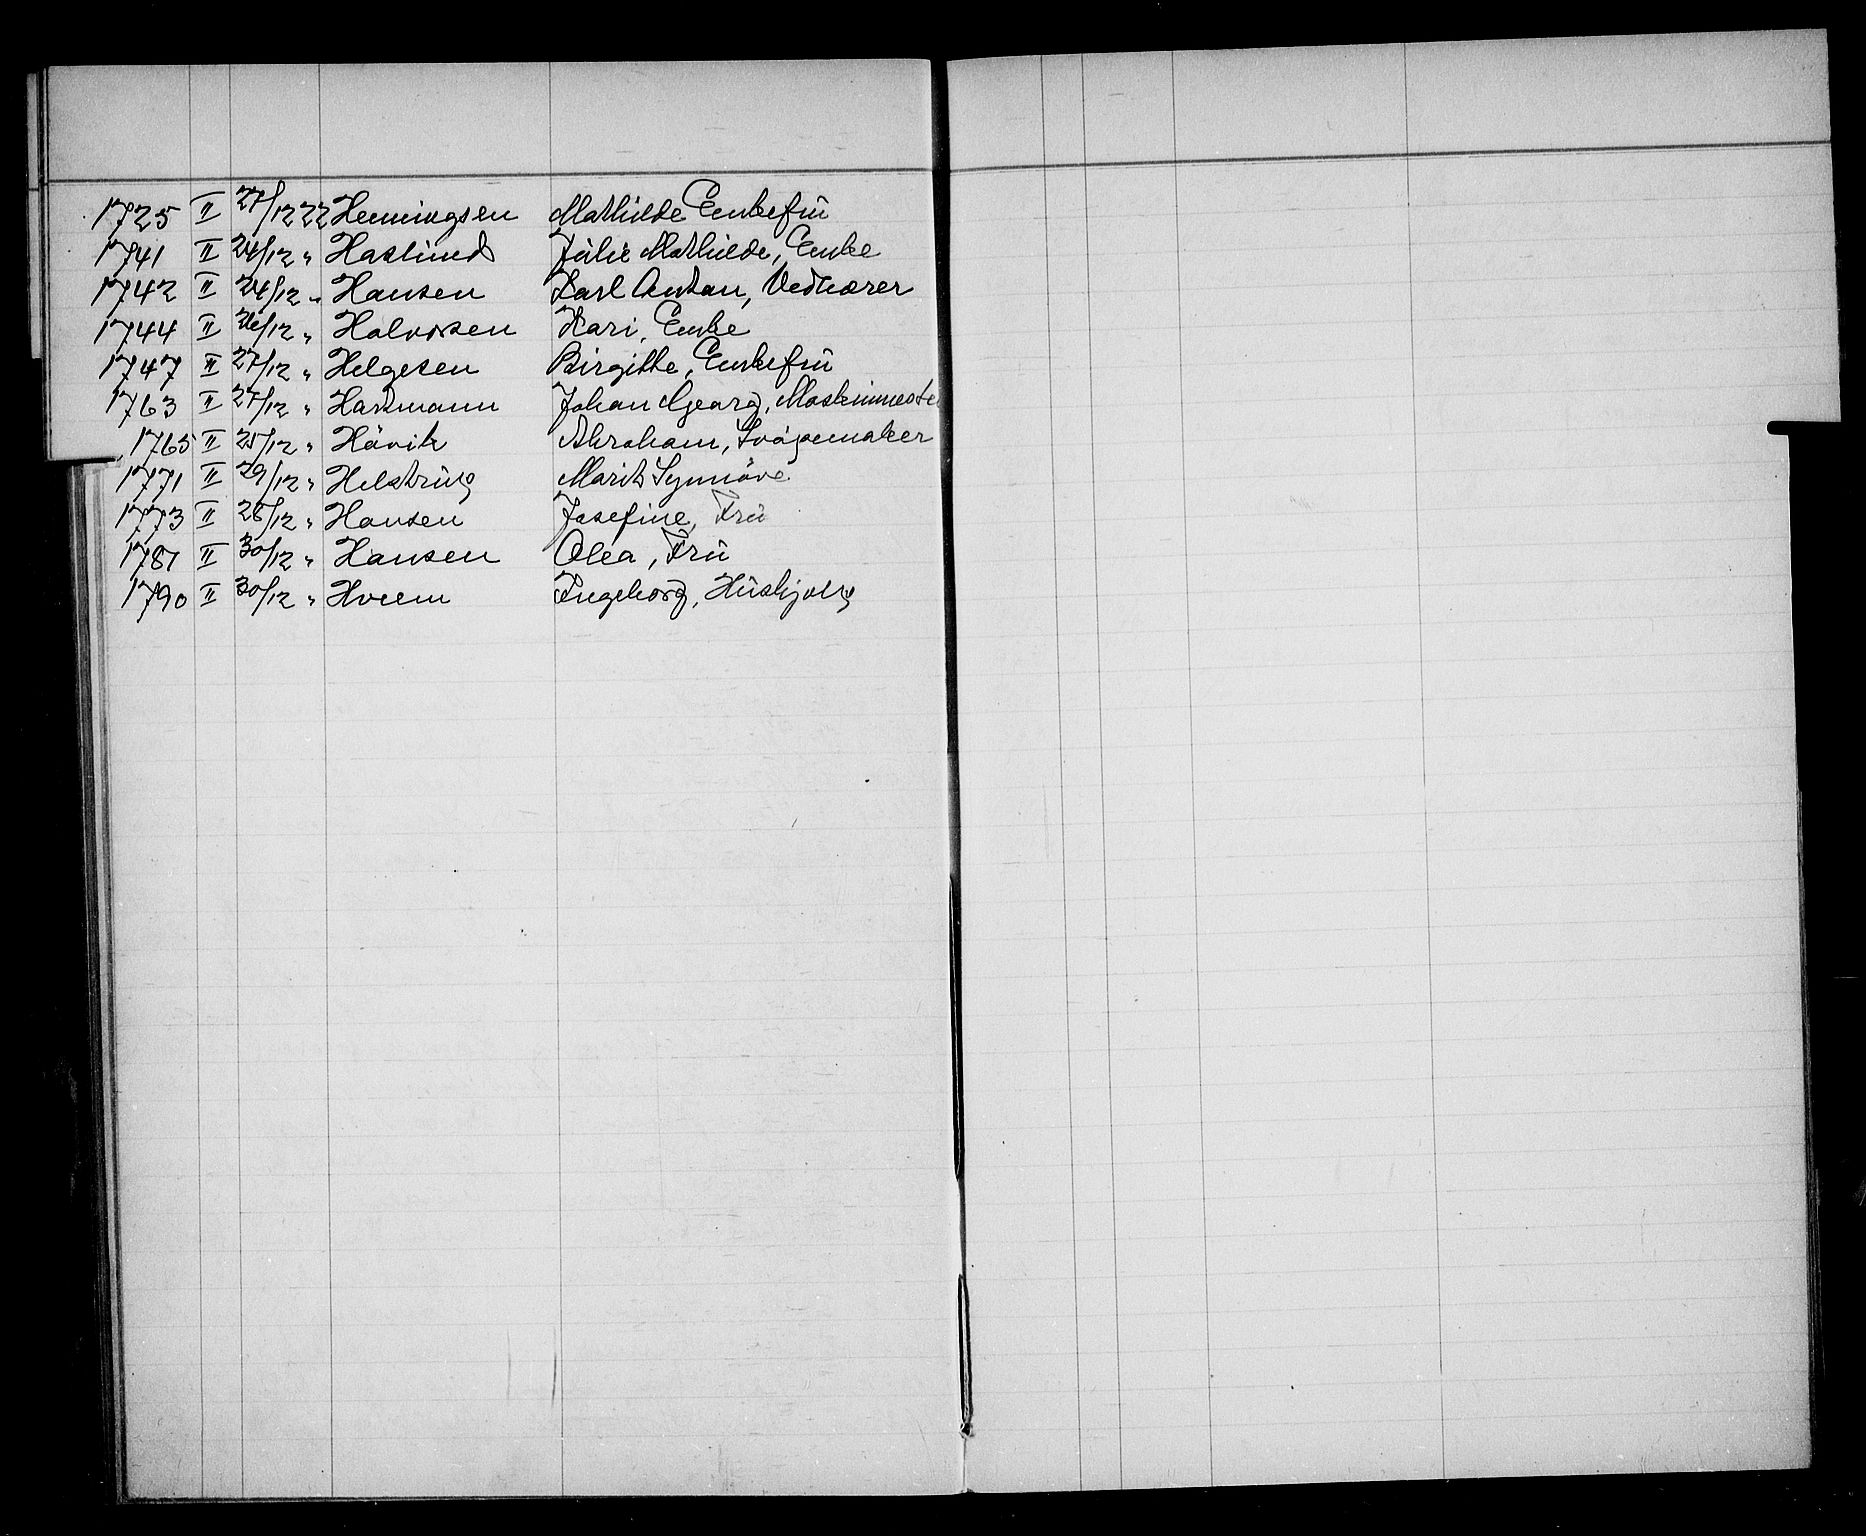 1725 II 27/12 22 Henningsen Mathilde Enkefrü
1741 II 24/12 " Haslünd Jülie Mathilde, Enke
1742 II 24/12 " Hansen Karl Anton, Vedkører
1744 II 26/12 " Halvorsen Kari, Enke
1747 II 27/12 " Helgesen Birgitte, Enkefrü
1763 II 27/12 " Hartmann Johan Georg, Maskinmeste
1765 II 25/12 " Hövik Abraham, Svøpemaker
1771 II 29/12 " Helstrüp Marit Synnöve
1773 II 28/12 " Hansen Josefine, Frü
1781 II 30/12 " Hansen Olea, Frü
1790 II 30/12 " Hveem Ingeborg, Hüshjelp